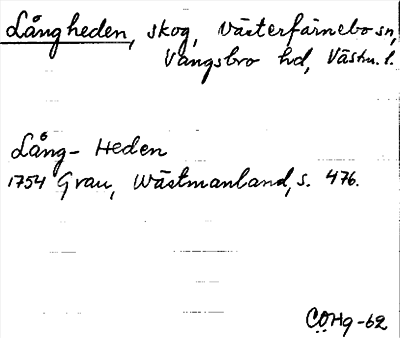 Långheden, skog, Västerfärnebo sn,
Vangsbro hd, Västm. l.
Lång- Heden
1754 Grau, Wästmanland, s. 476.
COHg-62